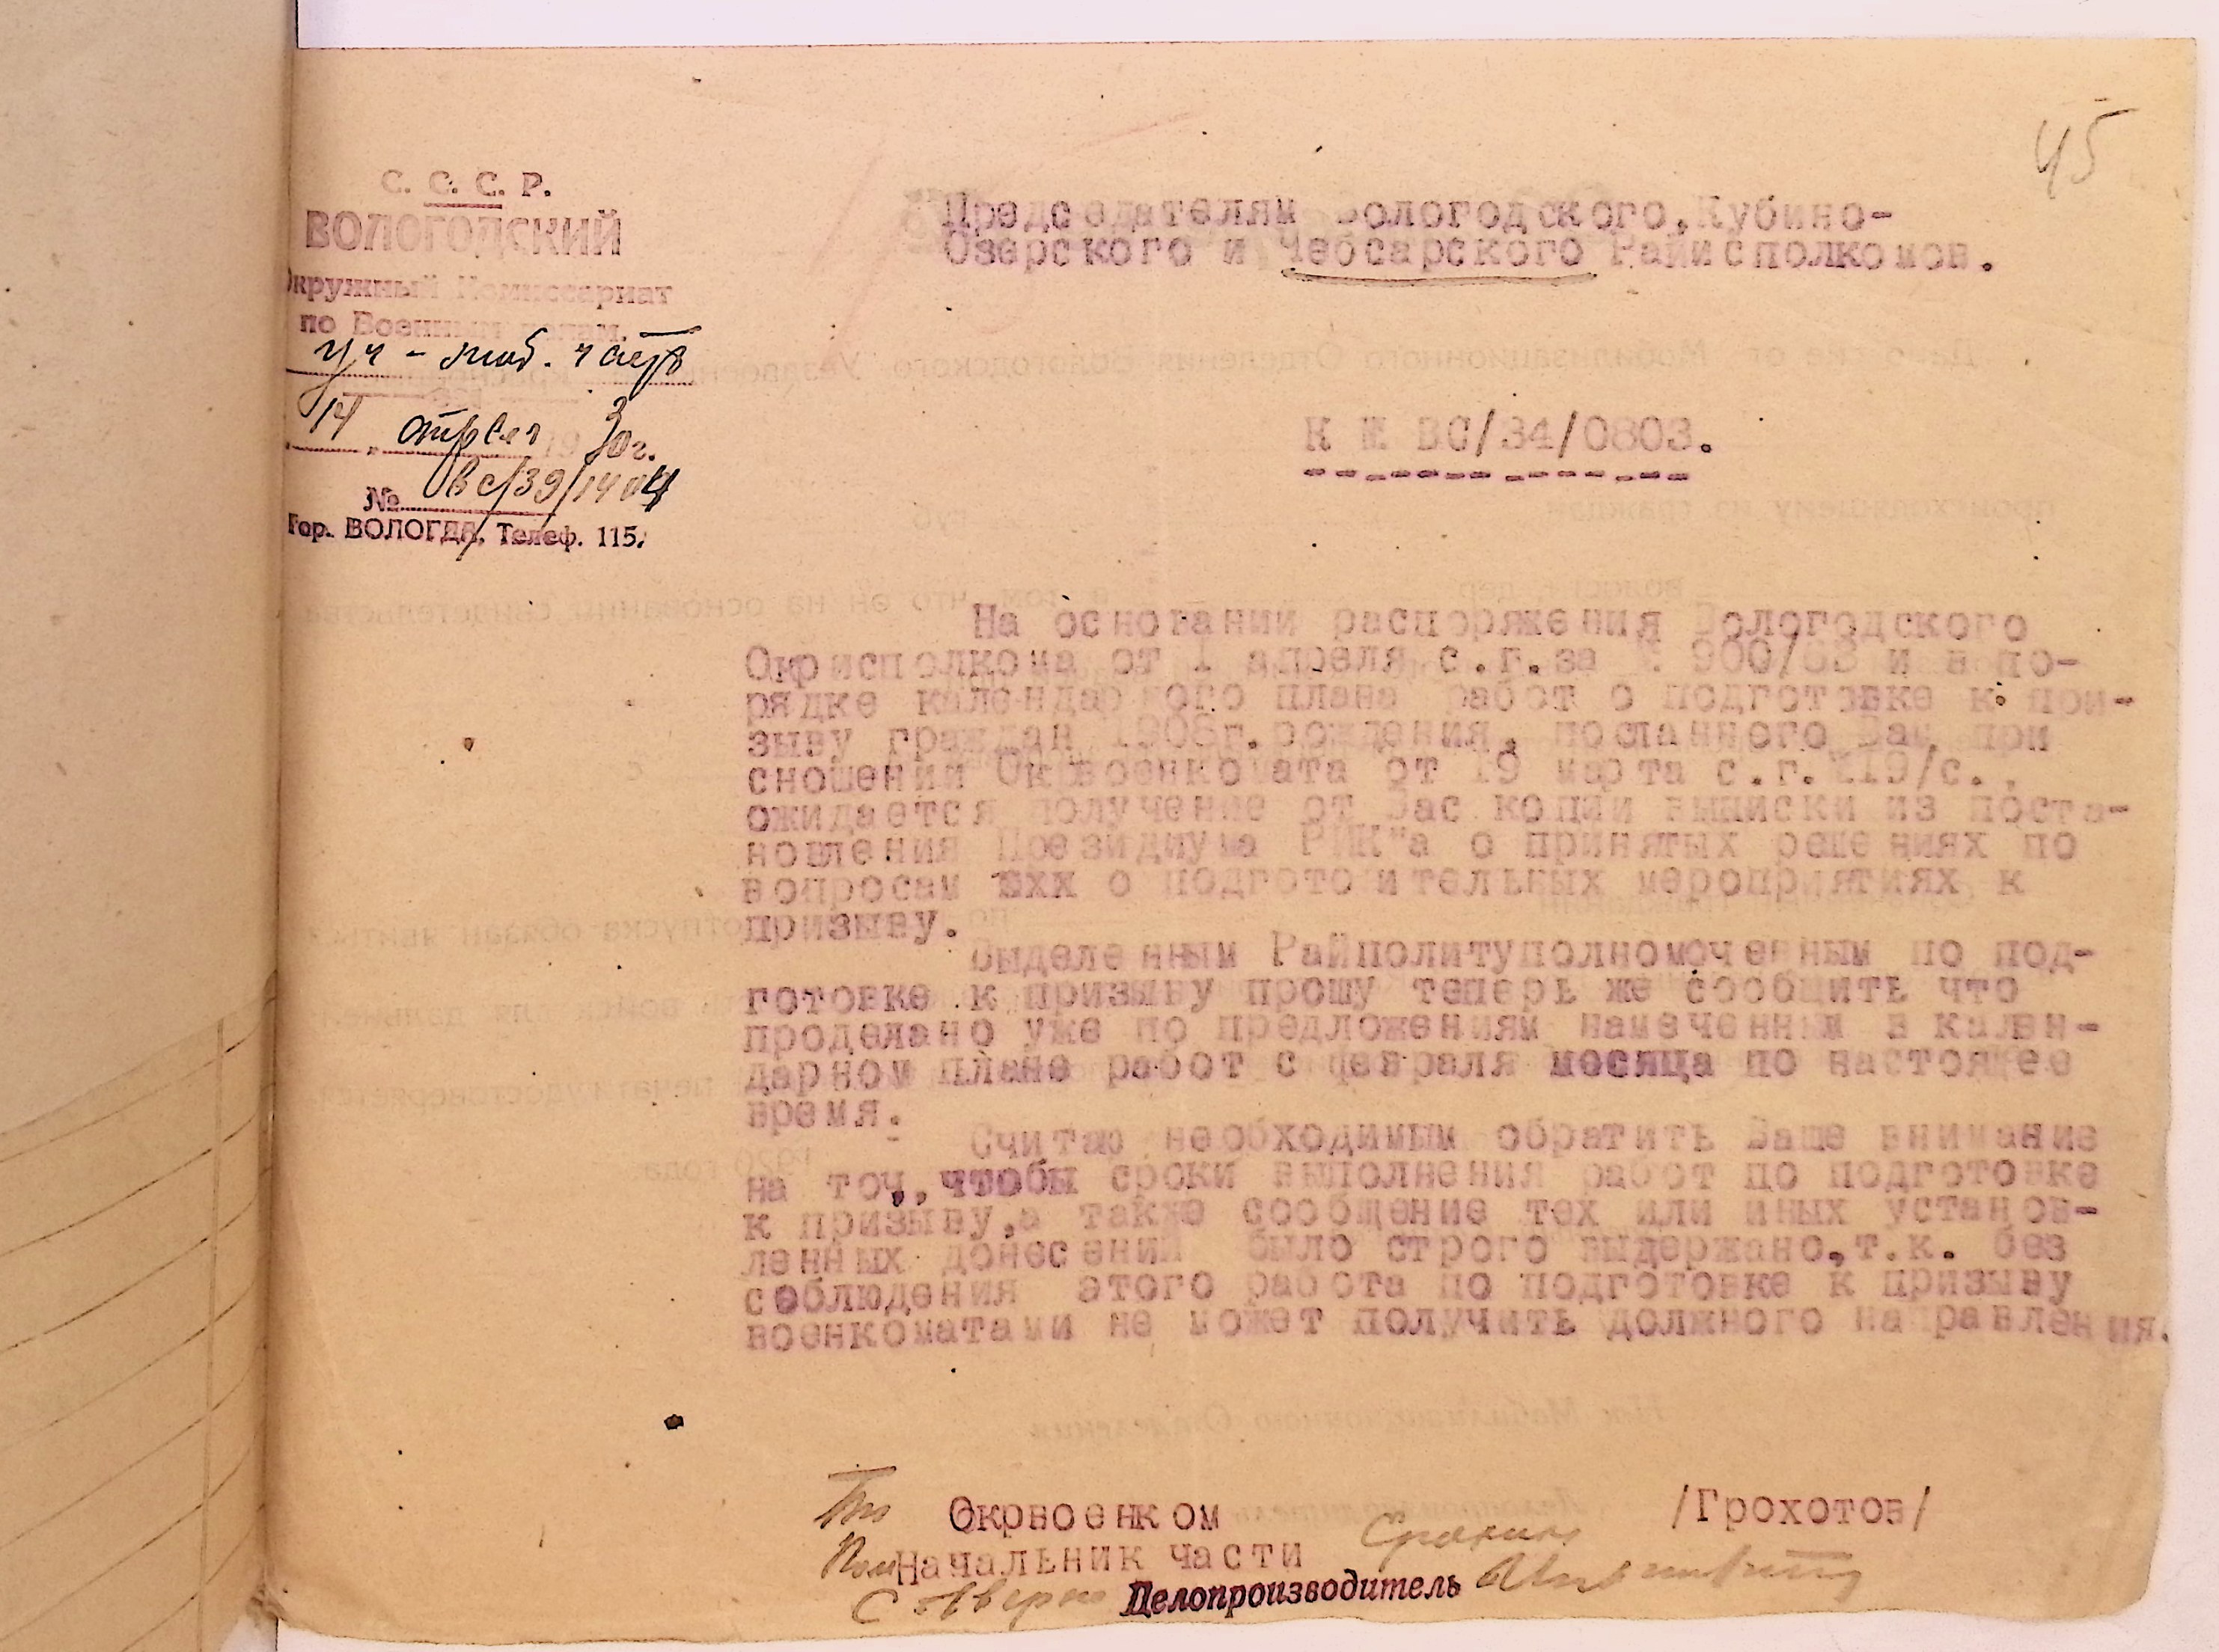 45
С. С. С. Р.
ВОЛОГОДСКИЙ
Окружный Комиссариат
по Военным делам.
Уч-моб. часть
14 апреля 1930г.
№ вс/39/1404
Гор. ВОЛОГДА, Телеф. 115.
Председателям Вологодского,Кубино-
Озерского и Чебсарского Райисполкомов.
К № ВС/34/0803.
На основании распоряжения Вологодского
Окрисполкома от 1 апреля с.г.за № 900/63 и в по-
рядке календарного плана работ о подготовке к при-
зыву граждан 1908г.рождения, посланного Вам при
сношении Окрвоенкомата от 19 марта с.г.№19/с.,
ожидается получение от Вас копии выписки из поста-
новления Президиума РИК"а о принятых решениях по
вопросам ххх о подготовительных мероприятиях к
призыву.
Выделенным Райполитуполномоченным по под-
готовке к призыву прошу теперь же сообщить что
проделано уже по предложениям намеченным в кален-
дарном плане работ с февраля месяца по настоящее
время.
Считаю необходимым обратить Ваше внимание
на то,,чтобы сроки выполнения работ по подготовке
к призыву,а также сообщение тех или иных установ-
ленных донесений было строго выдержано,т.к. без
соблюдения этого работа по подготовке к призыву
военкоматами не может получить должного направления.
Окрвоенком /Грохотов/
Пом Начальник части
С Верно Делопроизводитель